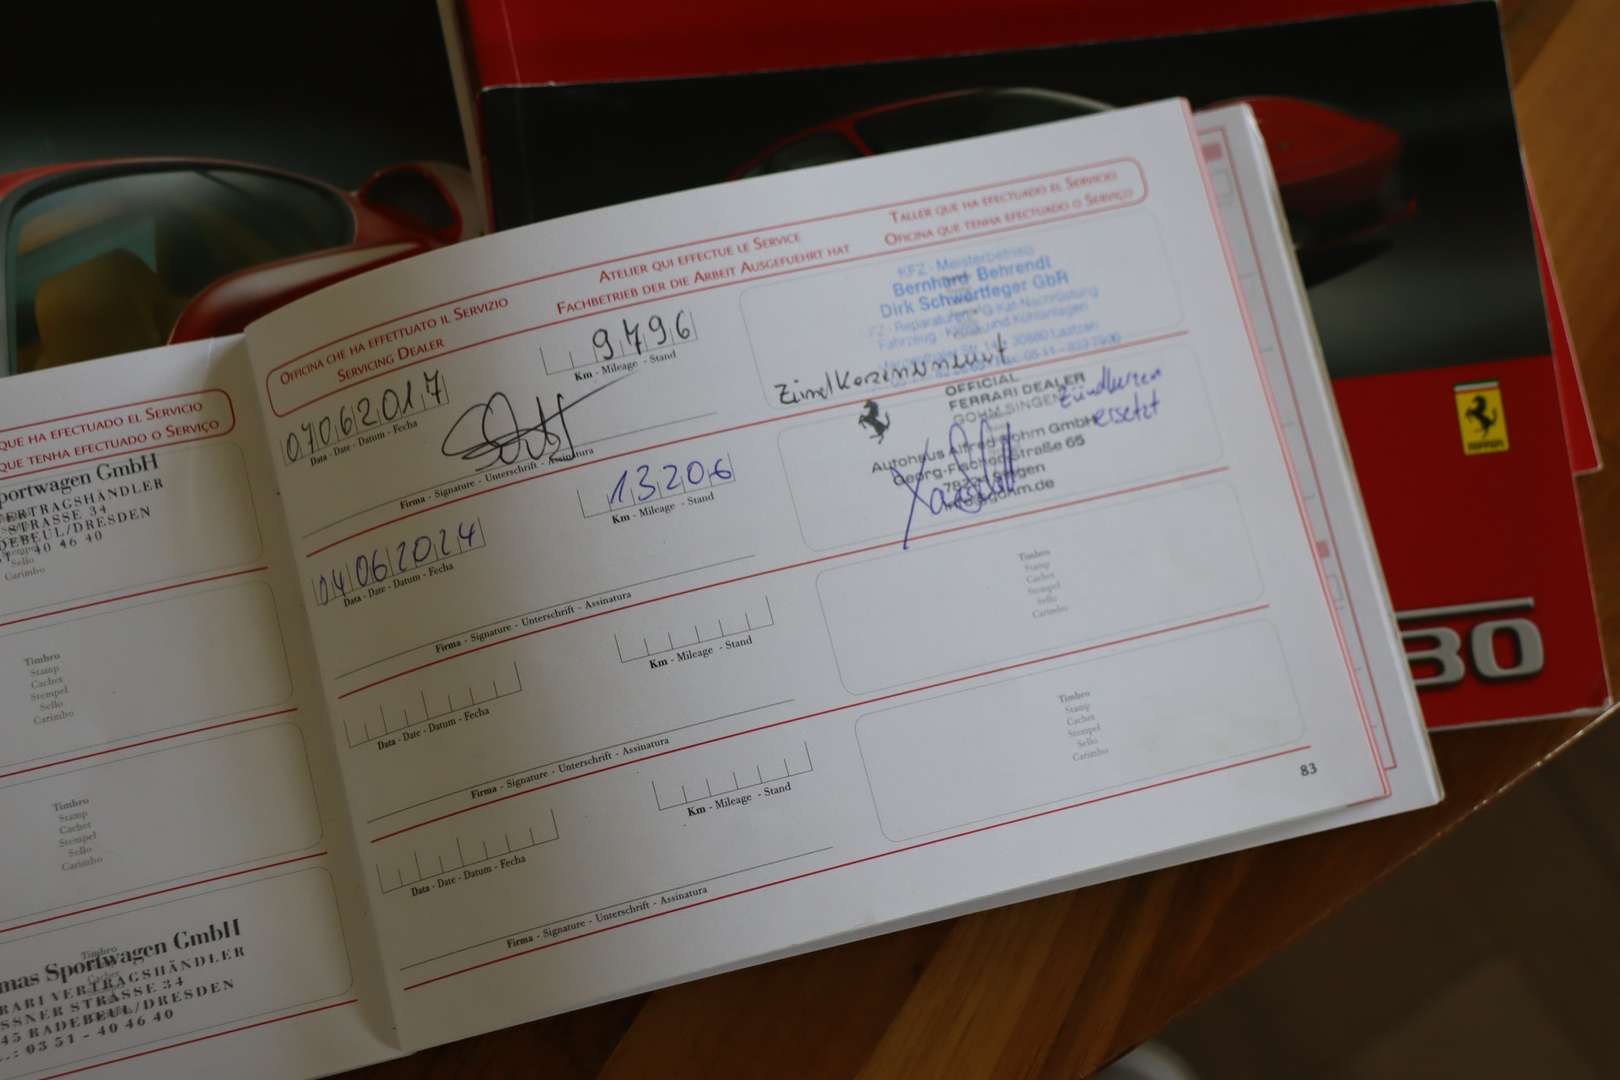 QUE HA EFECTUADO EL SERVICIO
QUE TENHA EFECTUADO O SERVIÇO
portwagen GmbH
VERTRAGSHÄNDLER
STRASSE 34
DEBEUL/DRESDEN
40 46 40
Sello
Carimbo
Timbro
Stamp
Cachet
Stempel
Sello
Carimbo
Timbro
Stamp
Cachet
Stempel
Sello
Carimbo
Timbro
mas Sportwagen GmbH
RARI VERTRAGSHÄNDLER
SSNER STRASSE 34
45 RADEBEUL/DRESDEN
.: 03 51 - 40 46 40
OFFICINA CHE HA EFFETTUATO IL SERVIZIO
SERVICING DEALER
ATELIER QUI EFFECTUE LE SERVICE
FACHBETRIEB DER DIE ARBEIT AUSGEFUEHRT HAT
TALLER QUE HA EFECTUADO EL SERVICIO
OFICINA QUE TENHA EFECTUADO O SERVIÇO
07062017
Data - Date - Datum - Fecha
9796
Km - Mileage - Stand
Firma - Signature - Unterschrift - Assinatura
KFZ-Meisterbetrieb
Bernhard Behrendt
Dirk Schwertfeger GbR
Fahrzeug - Klima und Kühlanlagen
04062024
Data - Date - Datum - Fecha
13206
Km - Mileage - Stand
Firma - Signature - Unterschrift - Assinatura
OFFICIAL
FERRARI DEALER
GOHM SINGEN
Autohaus Alfred Gohm GmbH
Georg-Fischer-Straße 65
Singen
gohm.de
Zündkerzen
ersetzt
Data - Date - Datum - Fecha
Km - Mileage - Stand
Firma - Signature - Unterschrift - Assinatura
Timbro
Stamp
Cachet
Stempel
Sello
Carimbo
Data - Date - Datum - Fecha
Km - Mileage - Stand
Firma - Signature - Unterschrift - Assinatura
Timbro
Stamp
Cachet
Stempel
Sello
Carimbo
83
Ferrari
30